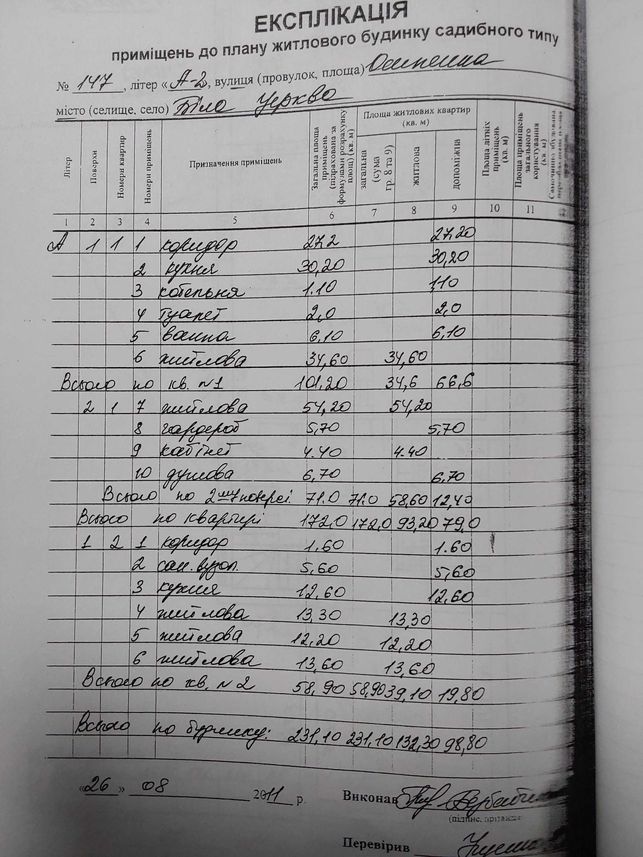 ЕКСПЛІКАЦІЯ
приміщень до плану житлового будинку садибного типу
№ 147, літер «А-2, вулиця (провулок, площа)
місто (селище, село) Біла Церква
Літер Поверхи Номери квартир Номери приміщень Призначення приміщень Загальна площа приміщень (підрахована за формулами розрахунку площі) (кв. м) Площа житлових квартир (кв. м) загальна (сума гр. 8 та 9) житлова допоміжна Площа літніх приміщень (кв. м) Площа приміщень загального користування (кв. м)
1 2 3 4 5 6 7 8 9 10 11
А 1 1 1 коридор 27,2 27,20
2 кухня 30,20 30,20
3 котельня 1.10 110
4 туалет 2,0 2,0
5 ванна 6,10 6,10
6 житлова 34,60 34,60
Всього по кв. N1 101,20 34,6 66,6
2 1 7 житлова 54,20 54,20
8 гардероб 5,70 5,70
9 кабінет 4.40 4.40
10 душова 6,70 6,70
Всього по 2 поверсі 71.0 71.0 58,60 12,40
Всього по квартирі 172.0 172,0 93,20 79,0
1 2 1 коридор 1.60 1.60
2 сан. вузол 5,60 5,60
3 кухня 12,60 12,60
4 житлова 13,30 13,30
5 житлова 12,20 12,20
6 житлова 13,60 13,60
Всього по кв. N 2 58,90 58,90 39,10 19,80
Всього по будинку: 231,10 231,10 132,30 98,80
«26» 08 2011 р.
Виконав
(підпис, прізвище
Перевірив